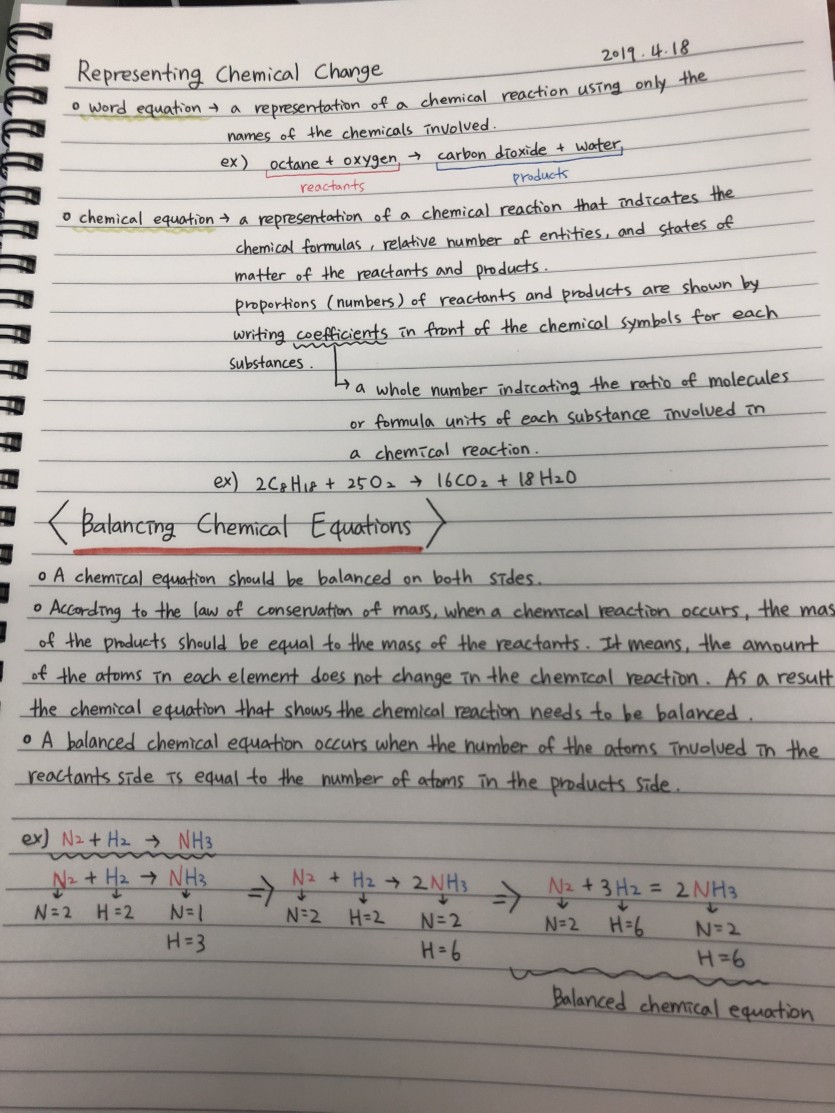 2019.4.18
Representing Chemical Change
o word equation → a representation of a chemical reaction using only the
names of the chemicals involved.
ex) octane + oxygen → carbon dioxide + water
reactants products
o chemical equation → a representation of a chemical reaction that indicates the
chemical formulas, relative number of entities, and states of
matter of the reactants and products.
proportions (numbers) of reactants and products are shown by
writing coefficients in front of the chemical symbols for each
substances.
↳ a whole number indicating the ratio of molecules
or formula units of each substance involved in
a chemical reaction.
ex) 2C8H18 + 25O2 → 16CO2 + 18H2O
< Balancing Chemical Equations >
o A chemical equation should be balanced on both sides.
o According to the law of conservation of mass, when a chemical reaction occurs, the mas
of the products should be equal to the mass of the reactants. It means, the amount
of the atoms in each element does not change in the chemical reaction. As a result
the chemical equation that shows the chemical reaction needs to be balanced.
o A balanced chemical equation occurs when the number of the atoms involved in the
reactants side is equal to the number of atoms in the products side.
ex) N2 + H2 → NH3
N2 + H2 → NH3 ⇒ N2 + H2 → 2NH3 ⇒ N2 + 3H2 = 2NH3
N=2 H=2 N=1 N=2 H=2 N=2 N=2 H=6 N=2
H=3 H=6 H=6
Balanced chemical equation